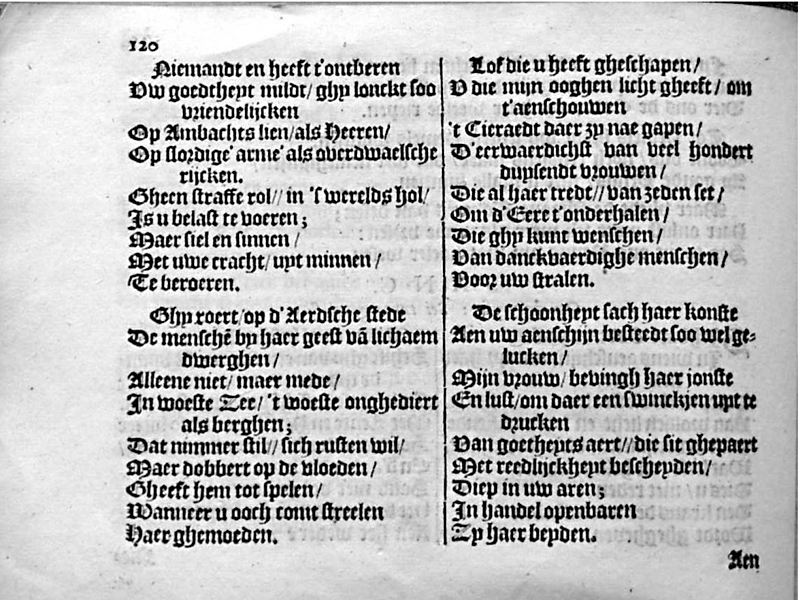 120
Niemandt en heeft t'ontberen
Uw goedtheyt mildt/ ghy lonckt soo
vriendelijcken
Op Ambachts lien/als Heeren/
Op slordige' arme' als overdwaelsche
rijcken.
Gheen straffe rol// in 's werelds hol/
Is u belast te voeren;
Maer siel en sinnen /
Met uwe cracht/ uyt minnen /
Te beroeren.
Ghy roert/op d'Aerdsche stede
De menschē by haer geest vā lichaem
dwerghen /
Alleene niet/ maer mede/
In woeste Zee/ 't woeste onghediert
als berghen;
Dat nimmer stil// sich rusten wil/
Maer dobbert op de vloeden/
Gheeft hem tot spelen/
Wanneer u ooch comt streelen
Haer ghemoeden.
Lof die u heeft gheschapen/
U die mijn ooghen licht gheeft/ om
t'aenschouwen
't Cieraedt daer zy nae gapen/
D'eerwaerdichst van veel hondert
duysendt vrouwen/
Die al haer tredt// van zeden set/
Om d'Eere t'onderhalen/
Die ghy kunt wenschen/
Van danckvaerdighe menschen/
Voor uw stralen.
De schoonheyt sach haer konste
Aen uw aenschijn besteedt soo wel ge-
lucken/
Mijn vrouw/ bevingh haer jonste
En lust/om daer een swinckjen uyt te
drucken
Van goetheyts aert//die sit ghepaert
Met reedlijckheyt bescheyden/
Diep in uw aren;
In handel openbaren
Zy haer beyden.
Aen